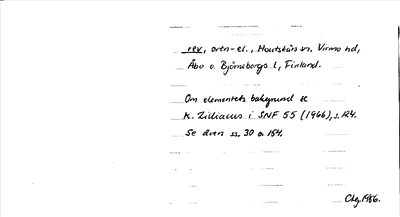 rev, ortn-el., Houtskärs sn, Virmo hd,
Åbo o. Björneborgs l, Finland.
Om elementets bakgrund se
K. Zilliacus i SNF 55 (1966), s. 124.
Se även ss. 30 o. 154.
Chg. 1986.